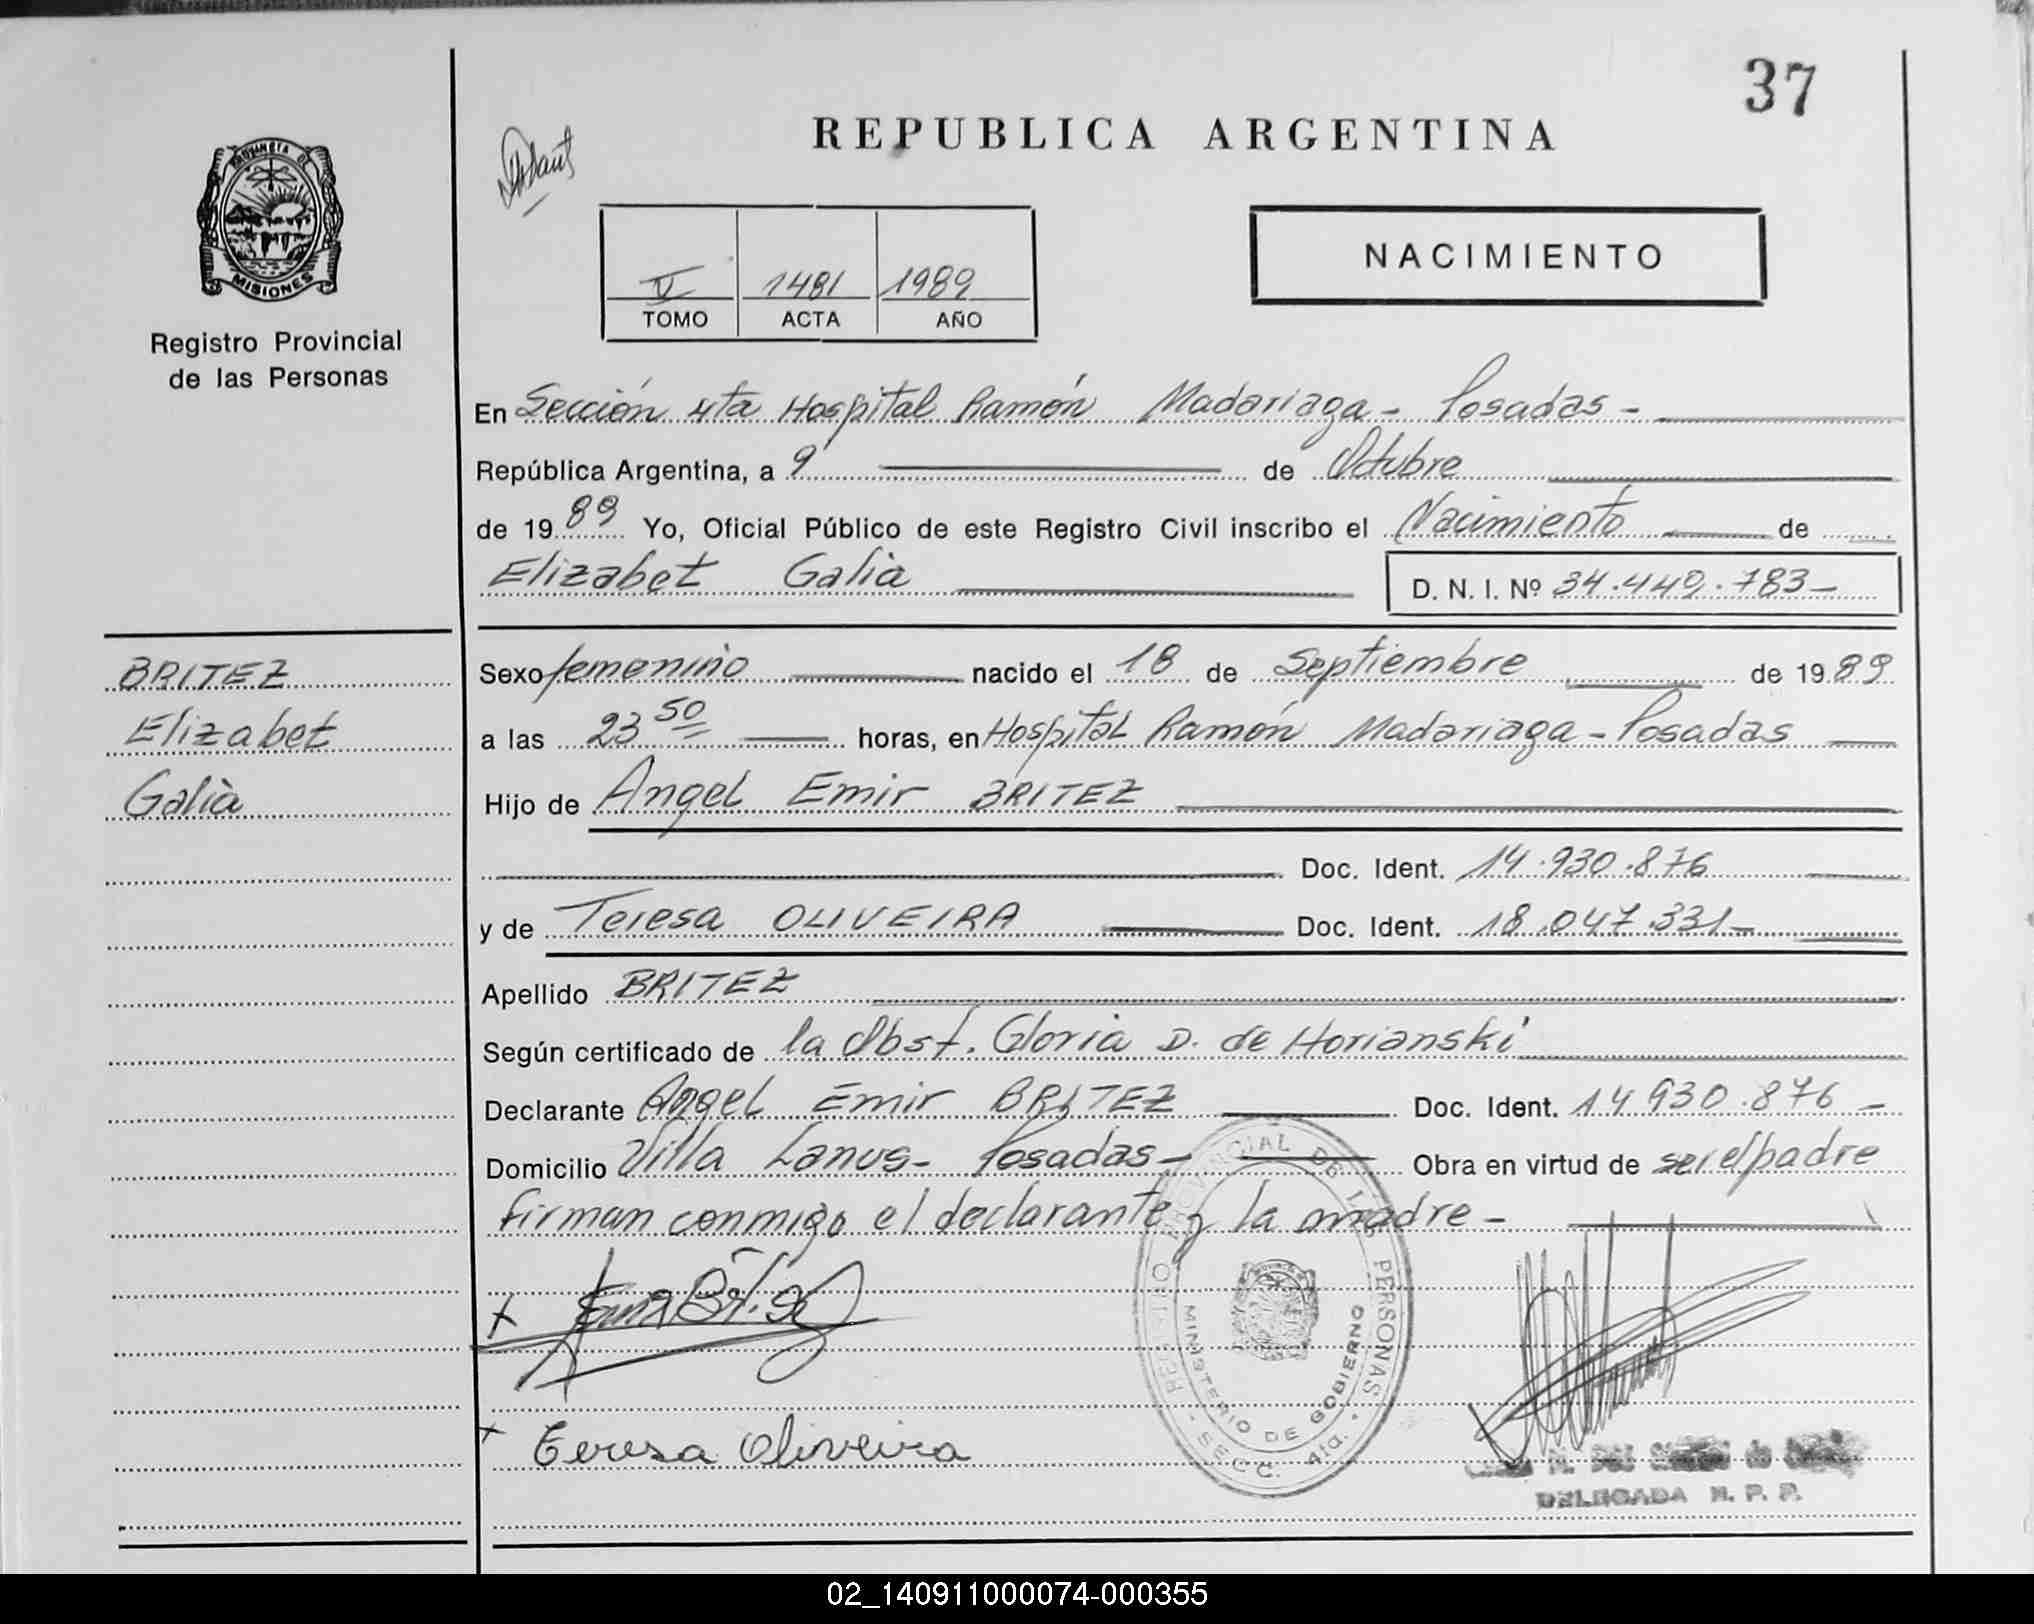 37
REPUBLICA ARGENTINA
PROVINCIA DE
MISIONES
Registro Provincial
de las Personas
V 1481 1989
TOMO ACTA AÑO
NACIMIENTO
En Sección 4ta Hospital Ramón Madariaga - Posadas -
República Argentina, a 9 de Octubre
de 1989 Yo, Oficial Público de este Registro Civil inscribo el Nacimiento de
Elizabet Galia D. N. I. Nº 34.449.783-
BRITEZ
Elizabet
Galia
Sexo femenino nacido el 18 de Septiembre de 1989
a las 23 50 horas, en Hospital Ramón Madariaga - Posadas
Hijo de Angel Emir BRITEZ
Doc. Ident. 14.930.876
y de Teresa OLIVEIRA Doc. Ident. 18.047.331-
Apellido BRITEZ
Según certificado de la Obst. Gloria D. de Horianski
Declarante Angel Emir BRITEZ Doc. Ident. 14.930.876 -
Domicilio Villa Lanus - Posadas - Obra en virtud de ser el padre
firman conmigo el declarante y la madre -
REGISTRO PROVINCIAL DE LAS PERSONAS
MINISTERIO DE GOBIERNO
- SECC. 4ta. -
x
x Teresa Oliveira
DELEGADA R. P. P.
02_140911000074-000355